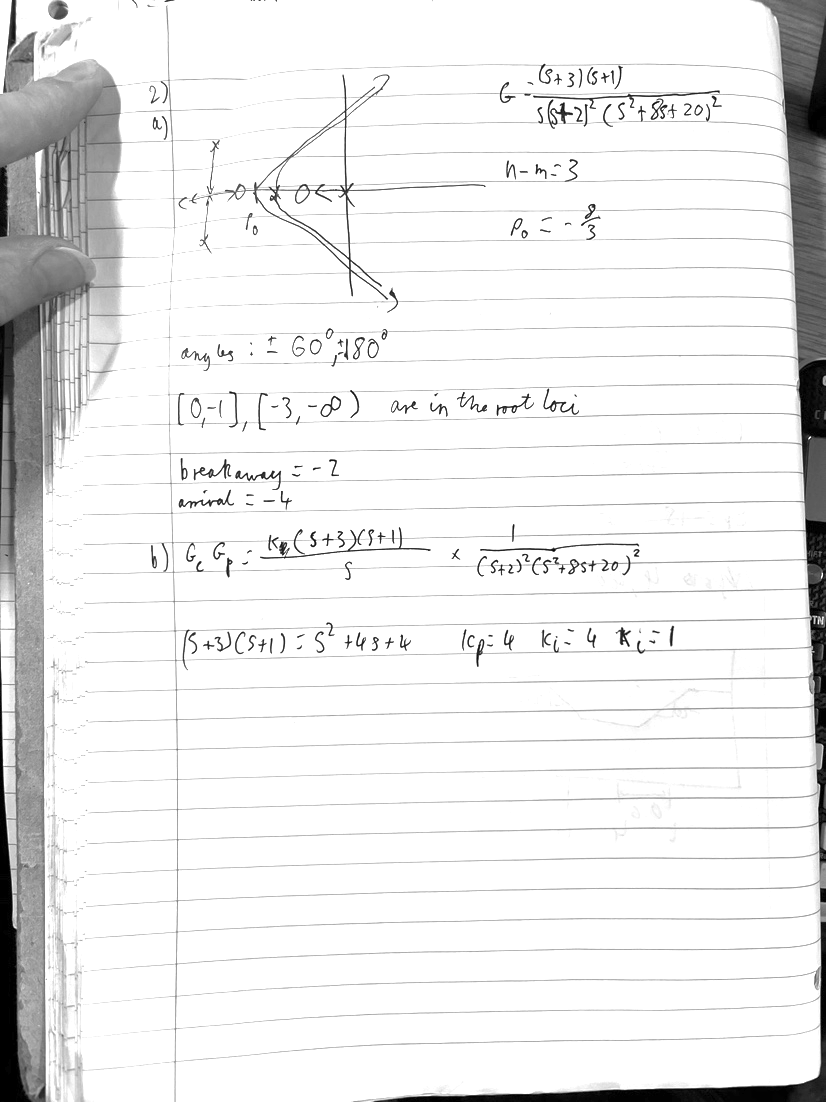 2)
a)
G = (s+3)(s+1) / s(s+2)² (s²+8s+20)²
n-m=3
ρ₀ = -8/3
ρ₀
angles : ± 60°, ±180°
[0,-1], [-3,-∞) are in the root loci
breakaway = -2
arrival = -4
b) G_c G_p = K(s+3)(s+1) / s × 1 / (s+2)²(s²+8s+20)²
(s+3)(s+1) = s² +4s+4 Kp=4 Ki=4 Ki=1